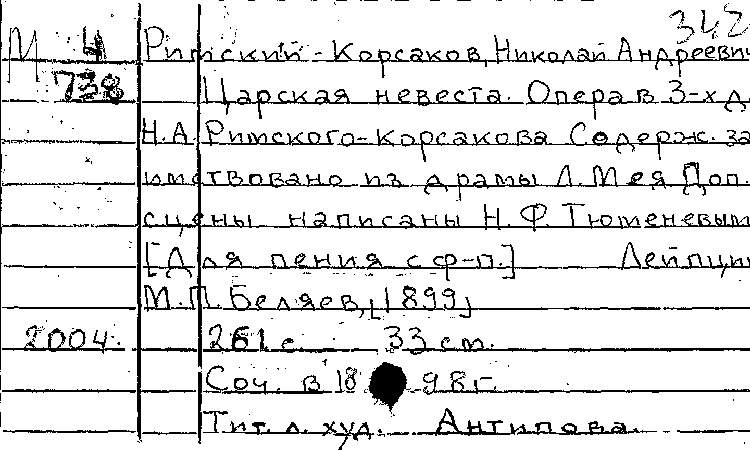 342
М 4 Римский-Корсаков, Николай Андреевич
738 Царская невеста. Опера в 3-х д.
Н.А. Римского-Корсакова Содерж. за
имствовано из драмы Л. Мея Доп.
сцены написаны И. Ф. Тюменевым
[Для пения с ф-п.] Лейпциг
М. П. Беляев, [1899]
2004. 261 с. 33 см.
Соч. в 1898 г.
Тит. л. худ. Антипова.